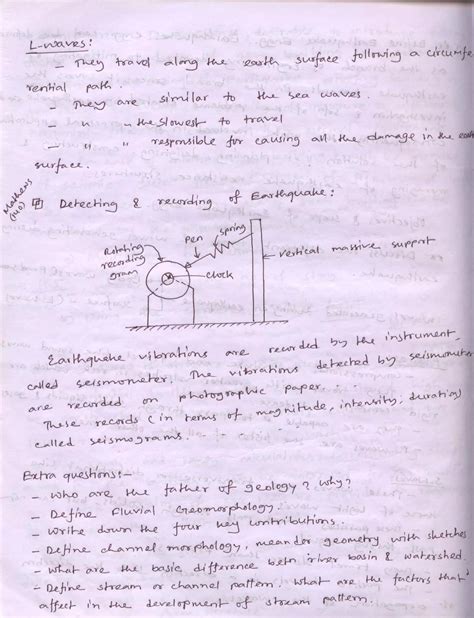 L-waves:
- They travel along the earth surface following a circumfe
rential path.
- They are similar to the sea waves.
- " - the slowest to travel
- " " responsible for causing all the damage in the earth
surface.
Detecting & recording of Earthquake:
Rotating
recording
gram
pen
spring
clock
vertical massive support
Earthquake vibrations are recorded by the instrument,
called seismometer. The vibrations detected by seismometer
are recorded on photographic paper.
These records (in terms of magnitude, intensity, duration)
called seismograms.
Extra questions:-
- Who are the father of geology? Why?
- Define Fluvial Geomorphology.
- Write down the four key contributions
- Define channel morphology, meander geometry with sketches
- What are the basic difference betn river basin & watershed
- Define stream or channel pattern. What are the factors that
affect in the development of stream pattern.